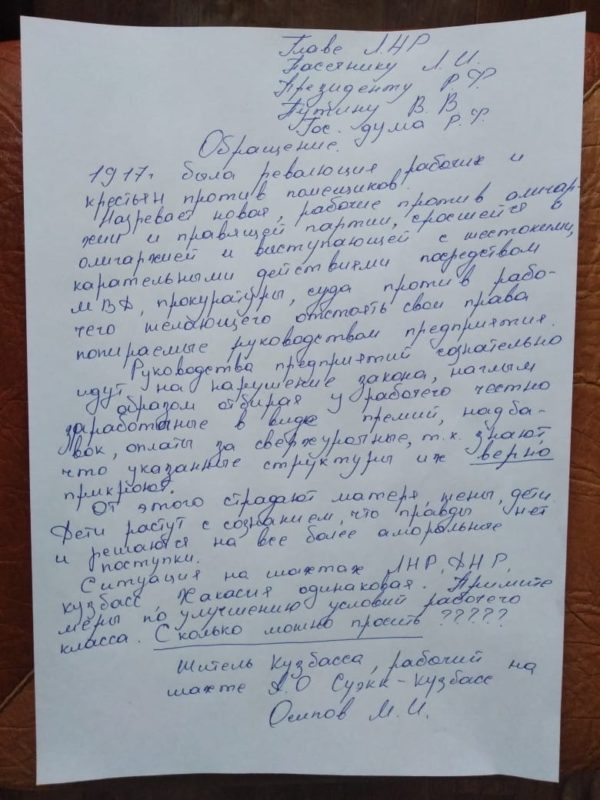 Главе ЛНР
Пасечнику Л.И.
Президенту Р.Ф.
Путину В.В.
Гос. дума Р.Ф.
Обращение.
1917г. была революция рабочих и
крестьян против помещиков.
Назревает новая, рабочие против олигар-
хии и правящей партии, сросшейся в
олигархией и выступающей с жестокими,
карательными действиями посредством
МВД, прокуратуры, суда против рабо-
чего желающего отстоять свои права
попираемые руководством предприятия.
Руководства предприятий сознательно
идут на нарушение закона, наглым
образом отбирая у рабочего честно
заработаные в виде премий, надба-
вок, оплаты за сверхурочные, т.к. знают,
что указанные структуры их верно
прикроют.
От этого страдают матеря, жены, дети.
Дети растут с сознанием, что правды нет
и решаются на все более аморальные
поступки.
Ситуация на шахтах ЛНР, ДНР,
Кузбасс, Хакасия одинаковая. Примите
меры по улучшению условий рабочего
класса. Сколько можно просить ?????
Житель Кузбасса, рабочий на
шахте А.О Суэкк-Кузбасс
Осипов М.И.